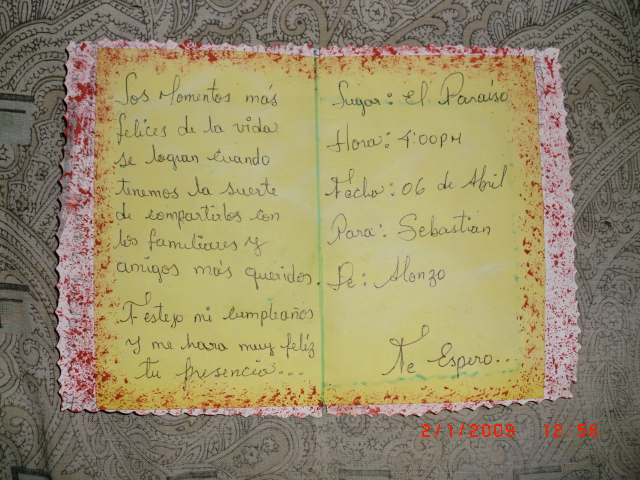 Los Momentos más
felices de la vida
se logran cuando
tenemos la suerte
de compartirlos con
los familiares y
amigos más queridos.
Festejo mi cumpleaños
y me hara muy feliz
tu presencia...
Lugar: el Paraiso
Hora: 4:00PM
Fecha: 06 de Abril
Para: Sebastian
De: Alonzo
Te Espero...
2/1/2009 12:56